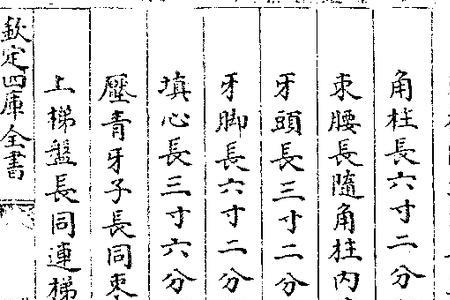 角柱長六寸二分
束腰長隨角柱内
牙頭長三寸二分
牙脚長六寸二分
填心長三寸六分
壓青牙子長同束
上梯盤長同連梯
欽定四庫全書